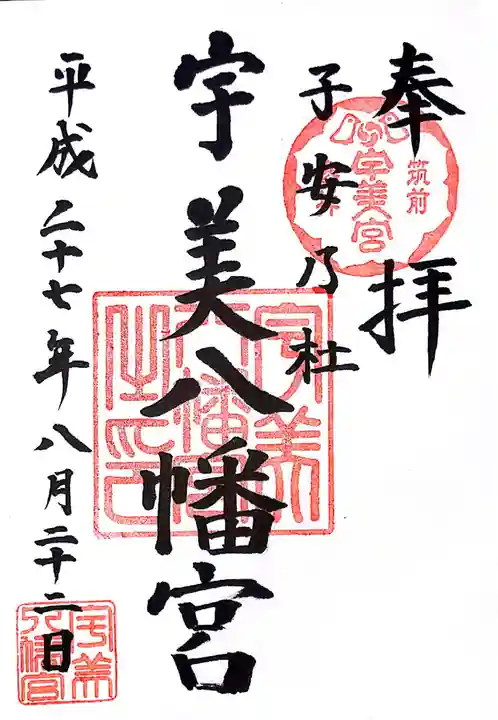 奉拝
筑前
宇美宮
子安乃社
宇美八幡宮
宇美
八幡宮
之印
平成二十七年八月二十二日
宇美
八幡宮